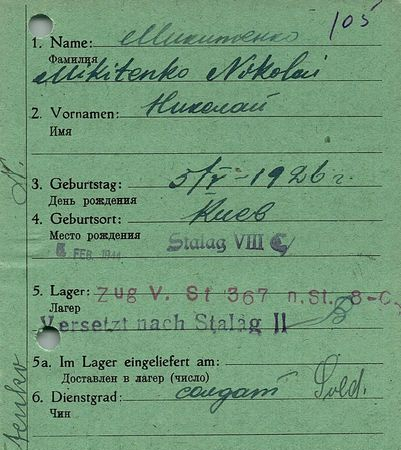 105
1. Name: Микитенко
Фамилия
Mikitenko Nikolai
2. Vornamen: Николай
Имя
3. Geburtstag: 5/V-1926 г.
День рождения
4. Geburtsort: Киев
Место рождения
FEB. 1944 Stalag VIII C
5. Lager: Zug V. St 367 n. St. 8-C.
Лагер
Versetzt nach Stalag II B
5a. Im Lager eingeliefert am:
Доставлен в лагер (число)
6. Dienstgrad: солдат Sold.
Чин